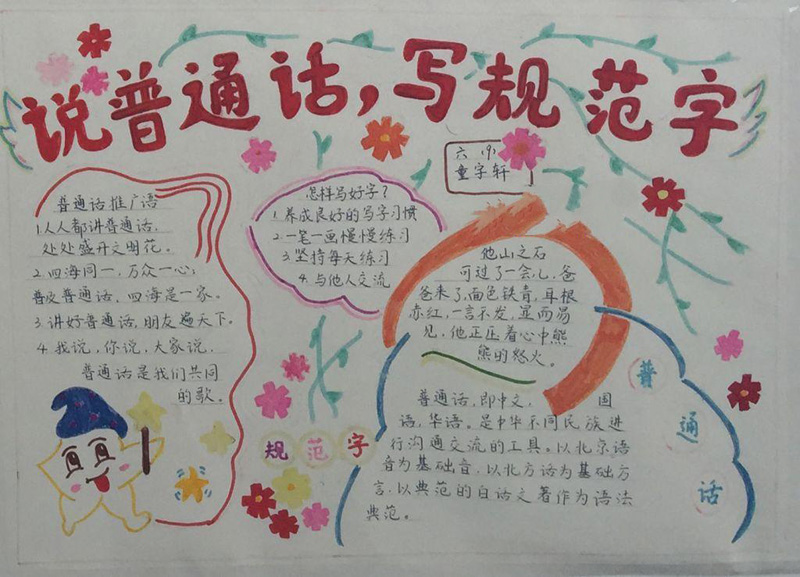 说普通话,写规范字
六(9)
童字轩
普通话推广语
1.人人都讲普通话,
处处盛开文明花。
2.四海同一,万众一心;
普及普通话,四海是一家。
3.讲好普通话,朋友遍天下。
4.我说,你说,大家说,
普通话是我们共同
的歌。
怎样写好字?
1.养成良好的写字习惯
2.一笔一画慢慢练习
3.坚持每天练习
4.与他人交流
他山之石
可过了一会儿,爸
爸来了,面色铁青,耳根
赤红,一言不发,显而易
见,他正压着心中熊
熊的怒火。
规范字
普通话,即中文,国
语,华语。是中华不同民族进
行沟通交流的工具。以北京语
音为基础音,以北方话为基础方
言,以典范的白话文著作为语法
典范。
普
通
话